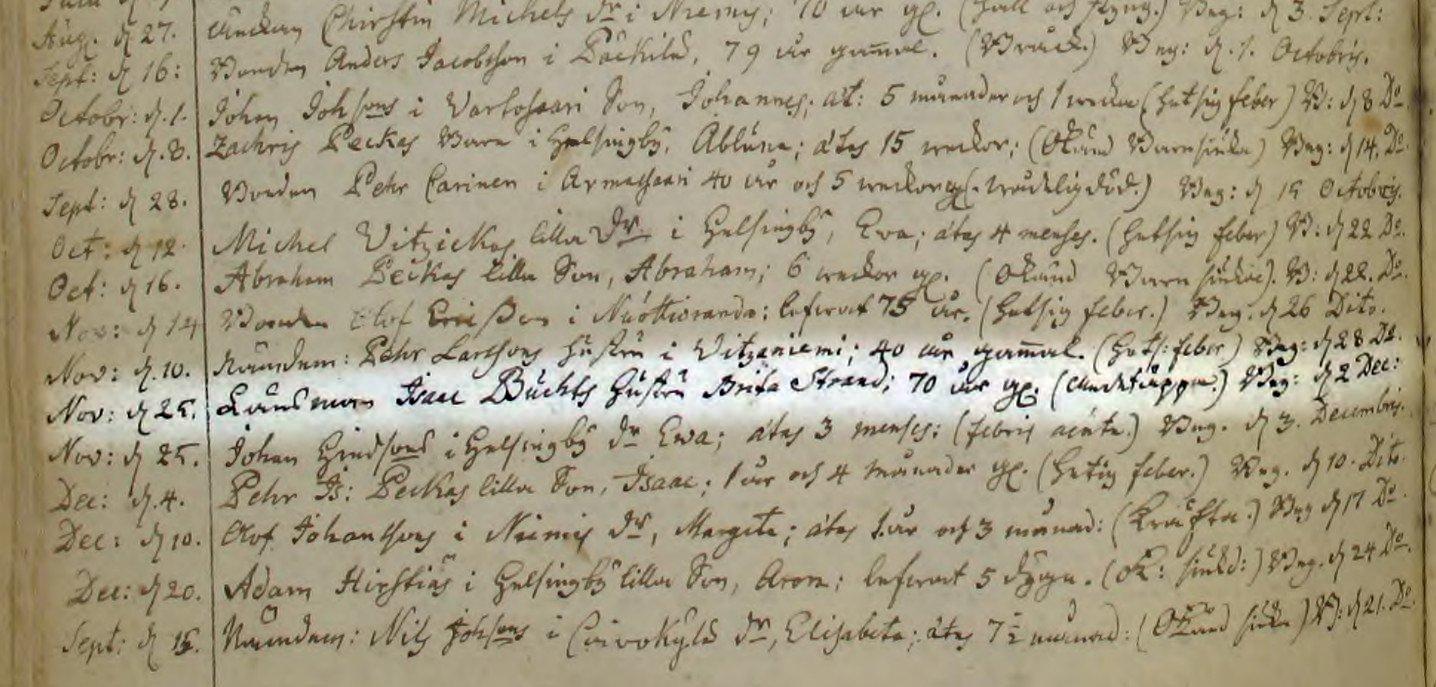 Aug. d 27. Änkan Chirstin Michels dr i Niemis; 70 år gl. (håll och styng.) Beg: d 3. Sept:
Sept: d 16: Bonden Anders Jacobsson i Päckilä, 79 år gam̄al. (Bråck.) Beg: d. 1. Octobris.
Octobr: d. 1. Johan Johsons i Vartosaari Son, Johannes; æt: 5 månader och 1 wecka (hetsig feber) B: d 8 Do
Octobr: d. 8. Zachris Peckas Barn i Helsingby, Abluna; ætas 15 weckor; (Okänd Barnsiuka) Beg: d 14. Do
Sept: d 28. Bonden Pehr Carinen i Armassaari 40 år och 5 weckor gl. Beg: d 15 Octobris.
Oct: d 12. Michel Vitzickas lilla Dr i Helsingby, Ewa; ætas 4 menses. (hetsig feber) B: d 22 Do.
Oct: d 16. Abraham Peckas lilla Son, Abraham; 6 weckor gl. (Okänd Barn siuka). B: d 22. Do.
Nov: d 14 Bonden Olof Ericßon i Nuottioranda; lefwat 75 år. (hetsig feber.) Beg. d 26 Dito.
Nov: d. 10. Nämdem: Pehr Larssons hustru i Vitzaniemi; 40 år gam̄al. (hets: feber) Beg: d 28 Do.
Nov: d 25. Länsman Isaac Buchts hustru Brita Strand; 70 år gl. (Andtäppa.) Beg: d 2 Dec:
Nov: d 25. Johan Hindsons i Helsingby dr Ewa; ætas 3 menses: (febris acuta.) Beg. d 3. Decembris.
Dec: d. 4. Pehr Is: Peckas lilla Son, Isaac; 1 år och 4 månader gl. (hetig feber.) Beg. d 10. Dito.
Dec: d 10. Olof Johanssons i Niemis dr, Margeta; ætas 1 år och 3 månad: (Kräfta.) Beg d 17 Do.
Dec: d 20. Adam Hirstius i Helsingby lilla Son, Aron; lefwat 5 dygn. (Ok: siukd:) Beg. d 24 Do.
Sept: d 15. Nämndem: Nils Johsons i Caivokylä dr, Elisabeta; ætas 7½ månad: (Okänd siuka) B: d 21. Do.